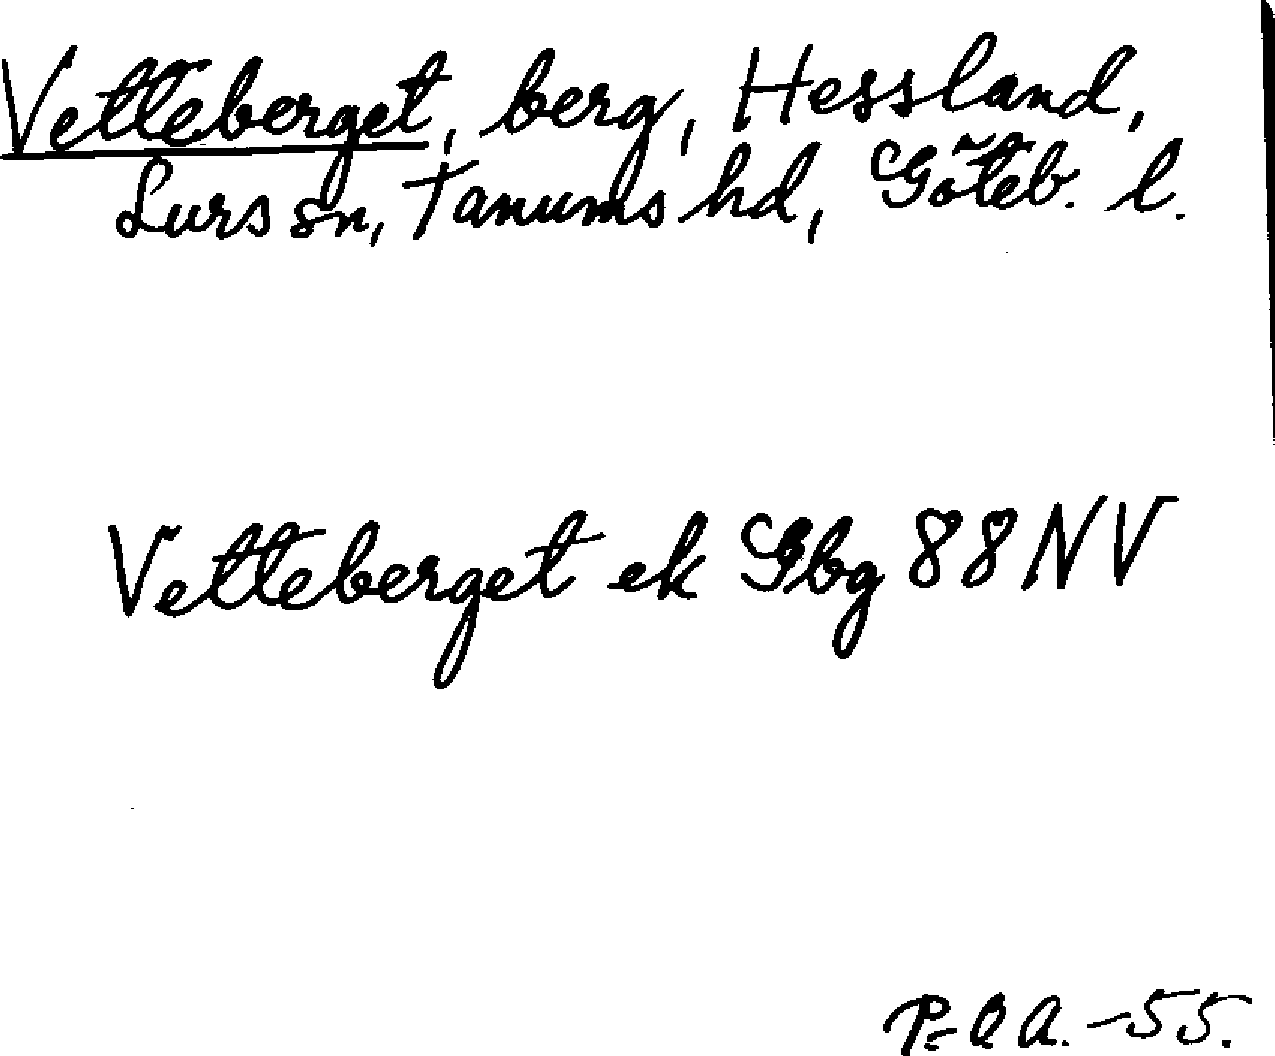 Vetteberget, berg, Hessland,
Lurs sn, Tanums hd, Göteb. l.
Vetteberget ek Gbg 88 NV
P-Q A. -55.